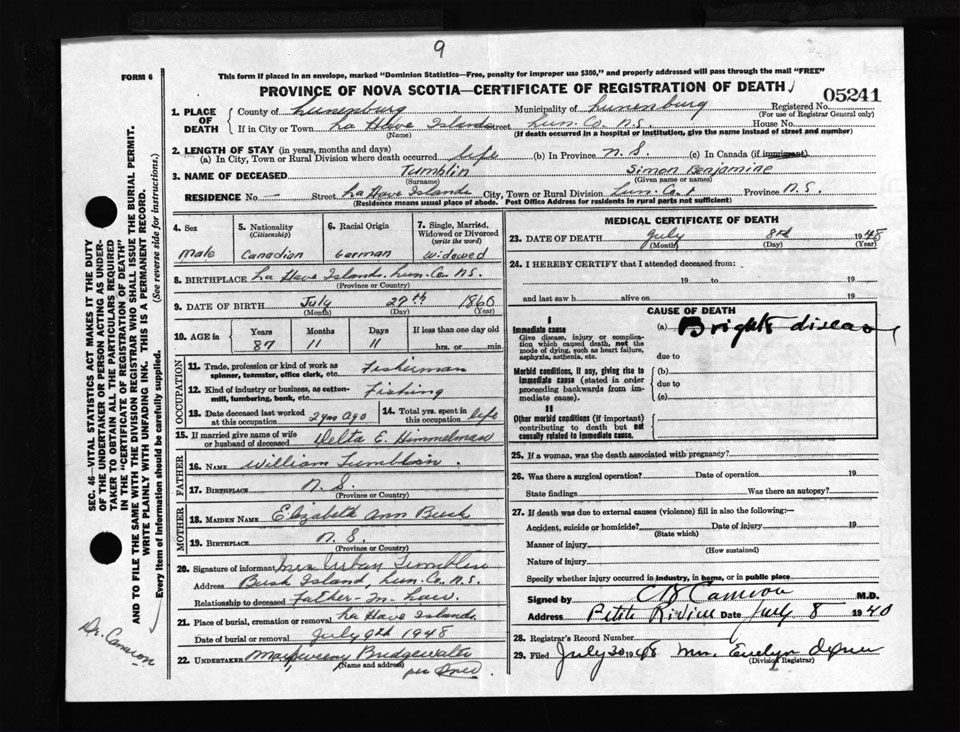 9
FORM 6
This form if placed in an envelope, marked "Dominion Statistics—Free, penalty for improper use $300," and properly addressed will pass through the mail "FREE"
PROVINCE OF NOVA SCOTIA—CERTIFICATE OF REGISTRATION OF DEATH
05241
1. PLACE OF DEATH
County of Lunenburg Municipality of Lunenburg Registered No.
(For use of Registrar General only)
If in City or Town La Have Islands Street Lun. Co. N.S. House No.
(Name) (If death occurred in a hospital or institution, give the name instead of street and number)
2. LENGTH OF STAY (in years, months and days)
(a) In City, Town or Rural Division where death occurred life (b) In Province N.S. (c) In Canada (if immigrant)
3. NAME OF DECEASED Tumblin Simon Benjamine
(Surname) (Given name or names)
RESIDENCE No Street La Have Islands City, Town or Rural Division Lun. Co. Province N.S.
(Residence means usual place of abode. Post Office Address for residents in rural parts not sufficient)
4. Sex
Male
5. Nationality
(Citizenship)
Canadian
6. Racial Origin
German
7. Single, Married, Widowed or Divorced
(write the word)
Widowed
8. BIRTHPLACE La Have Island. Lun. Co. N.S.
(Province or Country)
9. DATE OF BIRTH July 27th 1860
(Month) (Day) (Year)
10. AGE in Years Months Days If less than one day old
87 11 11 hrs. or min.
OCCUPATION
11. Trade, profession or kind of work as spinner, teamster, office clerk, etc. Fisherman
12. Kind of industry or business, as cotton-mill, lumbering, bank, etc. Fishing
13. Date deceased last worked at this occupation 2 yrs ago
14. Total yrs. spent in this occupation life
15. If married give name of wife or husband of deceased Delta E. Himmelman
FATHER
16. NAME William Tumblin
17. BIRTHPLACE N.S.
(Province or Country)
MOTHER
18. MAIDEN NAME Elizabeth Ann Bush
19. BIRTHPLACE N.S.
(Province or Country)
20. Signature of informant Mrs Urban Tumblin
Address Bush Island, Lun. Co. N.S.
Relationship to deceased Father-In-Law
21. Place of burial, cremation or removal La Have Islands
Date of burial or removal July 9th 1948
22. UNDERTAKER Bridgewater
(Name and address)
per
MEDICAL CERTIFICATE OF DEATH
23. DATE OF DEATH July 8th 1948
(Month) (Day) (Year)
24. I HEREBY CERTIFY that I attended deceased from:
19 to 19
and last saw h alive on 19
CAUSE OF DEATH
I
Immediate cause
Give disease, injury or complication which caused death, not the mode of dying, such as heart failure, asphyxia, asthenia, etc.
(a) Brights disease
due to
Morbid conditions, if any, giving rise to immediate cause (stated in order proceeding backwards from immediate cause).
(b)
due to
(c)
II
Other morbid conditions (if important) contributing to death but not causally related to immediate cause.
25. If a woman, was the death associated with pregnancy?
26. Was there a surgical operation? Date of operation 19
State findings Was there an autopsy?
27. If death was due to external causes (violence) fill in also the following:—
Accident, suicide or homicide? Date of injury 19
(State which)
Manner of injury
(How sustained)
Nature of injury
Specify whether injury occurred in industry, in home, or in public place
Signed by Cameron M.D.
Address Petite Riviere Date July 8 1940
28. Registrar's Record Number
29. Filed July 30 1948 Mrs. Evelyn
(Division Registrar)
SEC. 46—VITAL STATISTICS ACT MAKES IT THE DUTY
OF THE UNDERTAKER OR PERSON ACTING AS UNDER-
TAKER TO OBTAIN ALL THE PARTICULARS REQUIRED
IN THE "CERTIFICATE OF REGISTRATION OF DEATH"
AND TO FILE THE SAME WITH THE DIVISION REGISTRAR WHO SHALL ISSUE THE BURIAL PERMIT.
WRITE PLAINLY WITH UNFADING INK. THIS IS A PERMANENT RECORD.
Every item of information should be carefully supplied. (See reverse side for instructions.)
Dr. Cameron